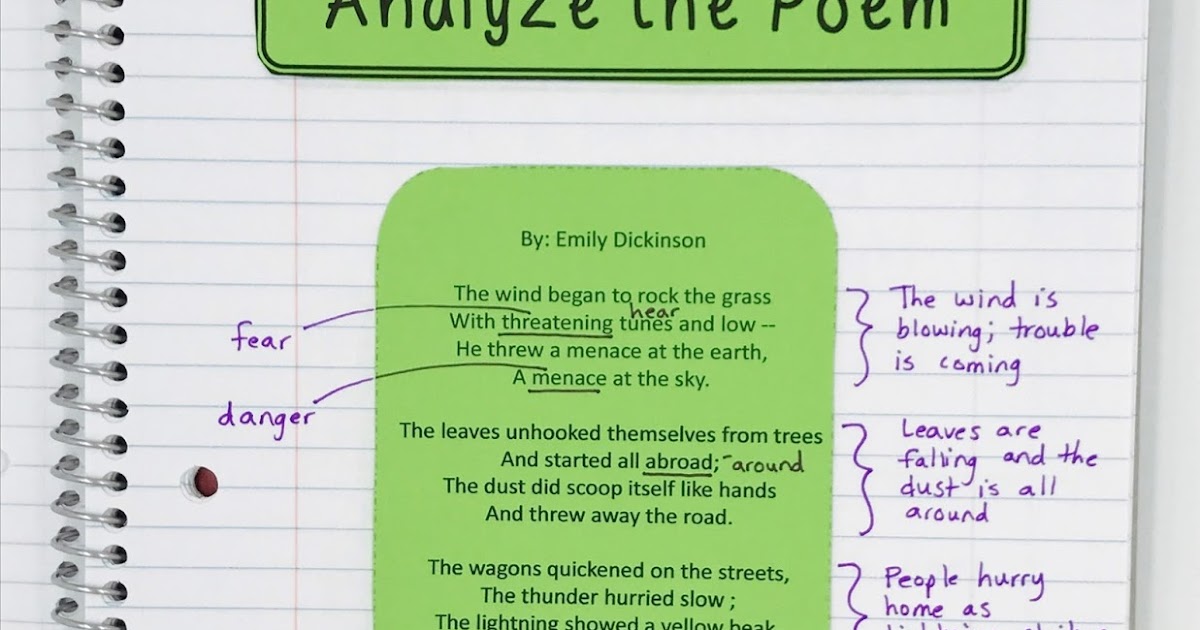 Analyze the Poem
By: Emily Dickinson
The wind began to rock the grass
hear
With threatening tunes and low --
He threw a menace at the earth,
A menace at the sky.
fear
danger
The wind is
blowing; trouble
is coming
The leaves unhooked themselves from trees
And started all abroad; -around
The dust did scoop itself like hands
And threw away the road.
Leaves are
falling and the
dust is all
around
The wagons quickened on the streets,
The thunder hurried slow ;
The lightning showed a yellow beak,
People hurry
home as